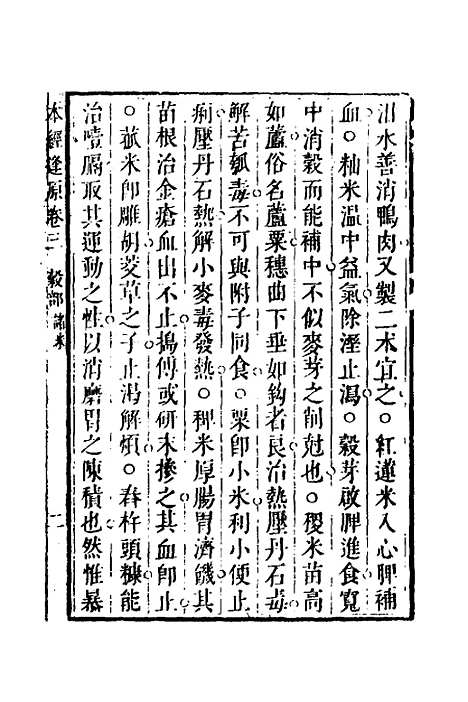 泔水善消鴨肉又製二朮宜之○紅蓮米入心脾補
血○秈米溫中益氣除溼止瀉○穀芽啟脾進食寬
中消穀而能補中不似麥芽之削尅也○稷米苗高
如蘆俗名蘆粟穗曲下垂如鉤者良治熱壓丹石毒
解苦瓠毒不可與附子同食○粟卽小米利小便止
痢壓丹石熱解小麥毒發熱○稗米厚腸胃濟饑其
苗根治金瘡血出不止搗傅或研末摻之其血卽止
○菰米卽雕胡菱草之子止渴解煩○舂杵頭糠能
治噎膈取其運動之性以消磨胃之陳積也然惟暴
本經逢原卷三 穀部 諸米 二